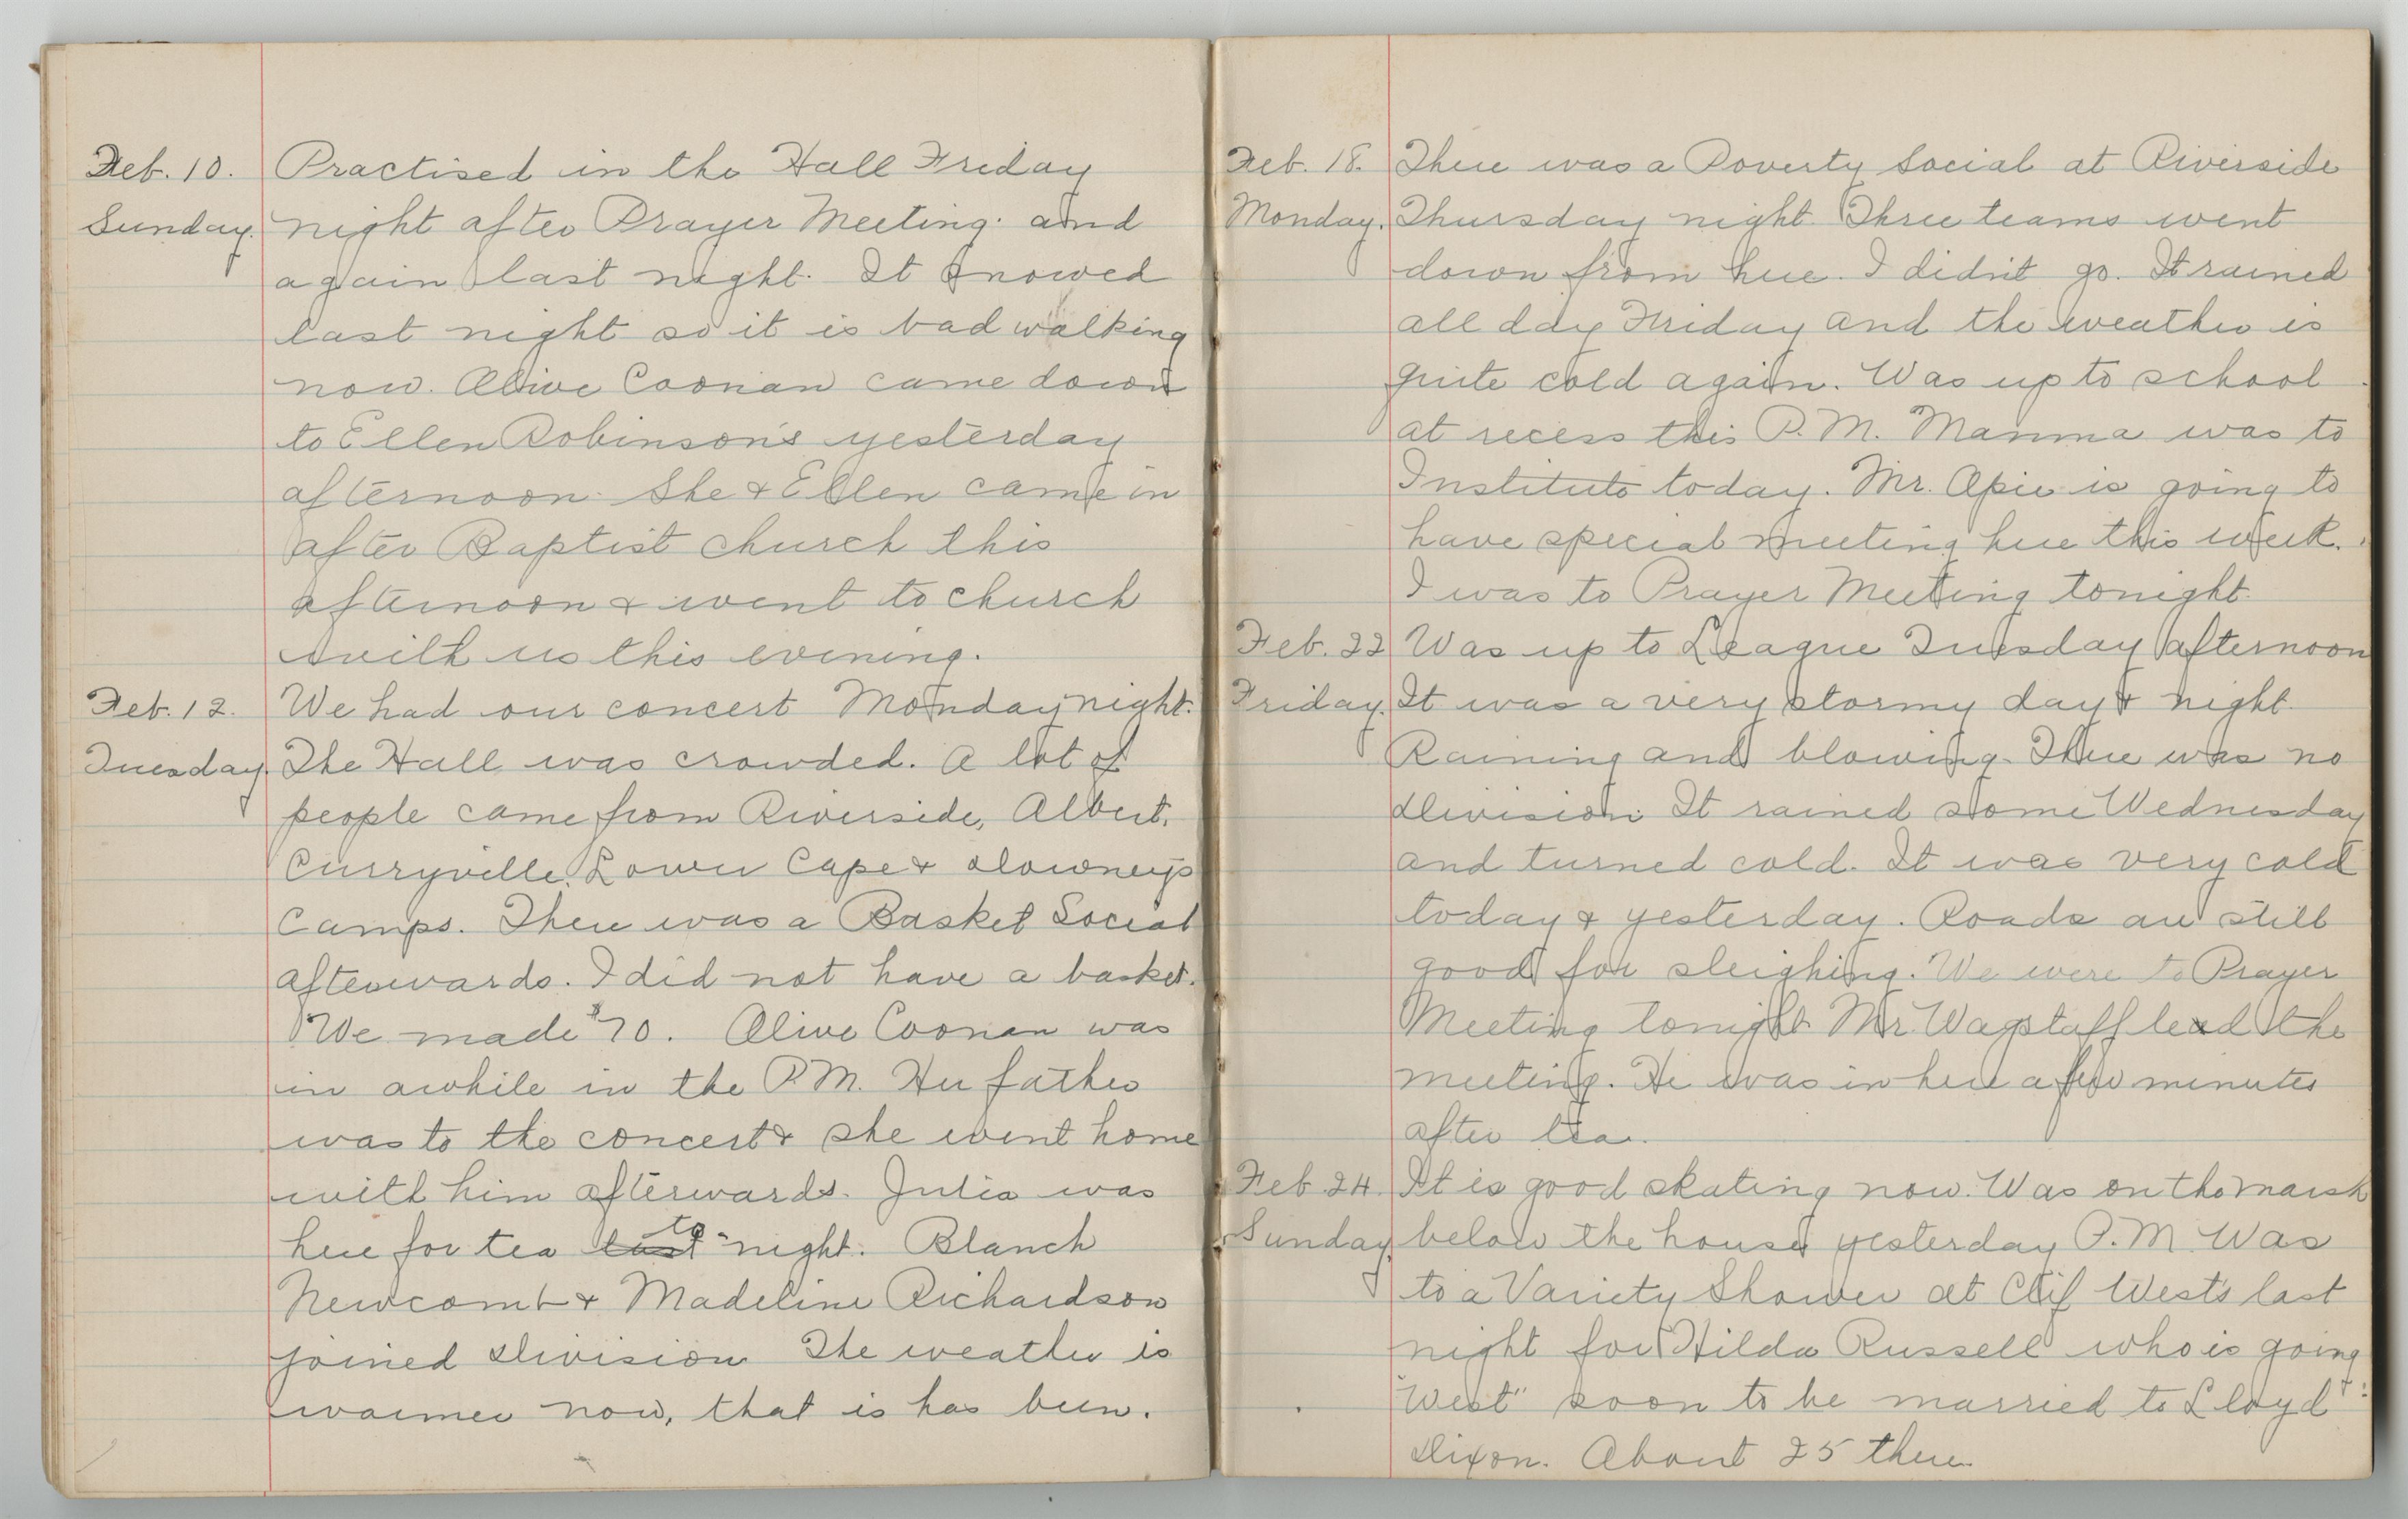 Feb. 10. Practised in the Hall Friday
Sunday. night after Prayer Meeting. and
again last night. It snowed
last night so it is bad walking
now. Olive Coonan came down
to Ellen Robinson's yesterday
afternoon. She & Ellen came in
after Baptist church this
afternoon & went to church
with us this evening.
Feb. 12. We had our concert Monday night.
Tuesday. The Hall was crowded. A lot of
people came from Riverside, Albert,
Curryville, Lower Cape & Downey's
Camps. There was a Basket Social
afterwards. I did not have a basket.
We made $70. Olive Coonan was
in awhile in the P.M. Her father
was to the concert & she went home
with him afterwards. Julia was
here for tea last to-night. Blanch
Newcomb & Madeline Richardson
joined Division The weather is
warmer now, that is has been.
Feb. 18. There was a Poverty Social at Riverside
Monday. Thursday night. Three teams went
down from here. I didn't go. It rained
all day Friday and the weather is
quite cold again. Was up to school
at recess this P.M. Mamma was to
Institute today. Mr. Opie is going to
have special meeting here this week.
I was to Prayer Meeting tonight.
Feb. 22 Was up to League Tuesday afternoon
Friday. It was a very stormy day & night.
Raining and blowing. There was no
Division. It rained some Wednesday
and turned cold. It was very cold
today & yesterday. Roads are still
good for sleighing. We were to Prayer
Meeting tonight Mr. Wagstaff lead the
meeting. He was in here a few minutes
after tea.
Feb 24. It is good skating now. Was on the marsh
Sunday below the house yesterday P.M. Was
to a Variety Shower at Clif West's last
night for Hilda Russell who is going
"West" soon to be married to Lloyd
Dixon. About 25 there.